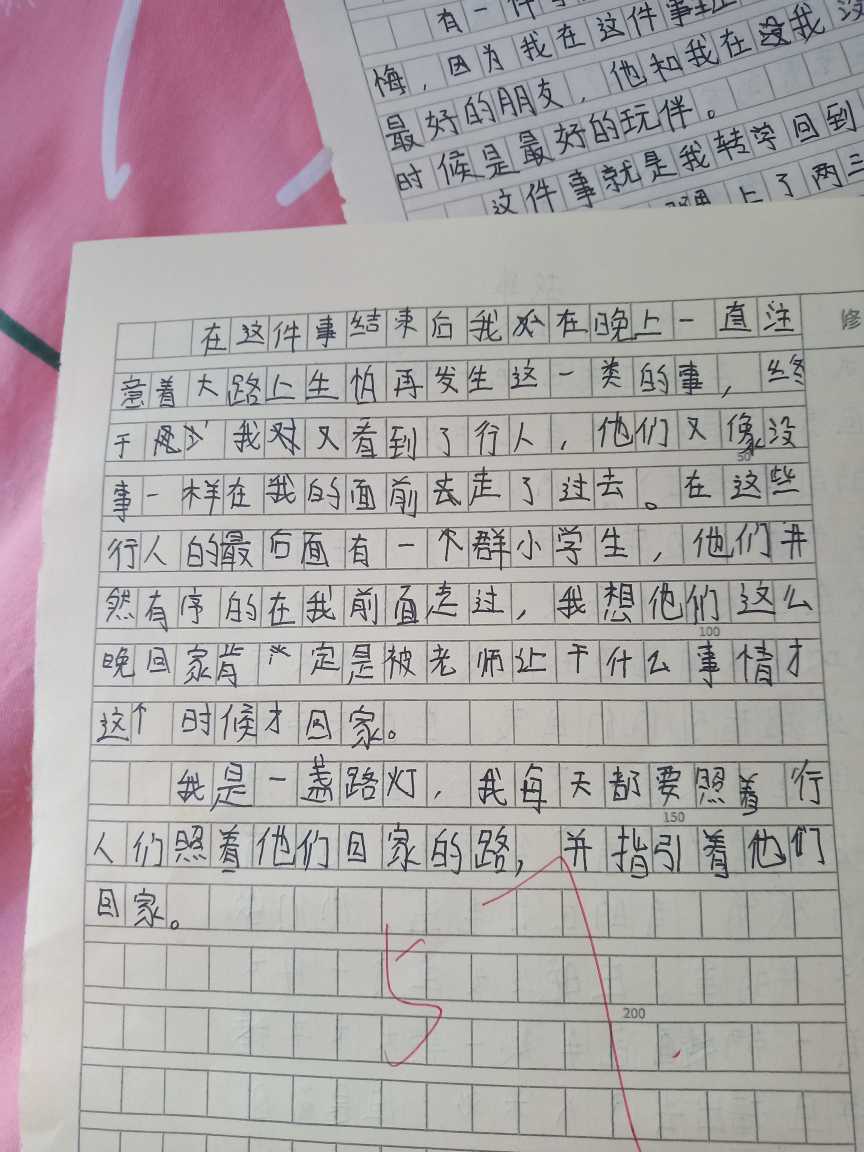 有一件
悔，因为我在这件事
最好的朋友，他和我在没我没
时候是最好的玩伴。
这件事就是我转学回到
上了两三
修
在这件事结束后我从在晚上一直注
意着大路上生怕再发生这一类的事，终
于我对又看到了行人，他们又像没
50
事一样在我的面前去走了过去。在这些
行人的最后面有一个群小学生，他们井
然有序的在我前面走过，我想他们这么
100
晚回家肯定是被老师让干什么事情才
这个时候才回家。
我是一盏路灯，我每天都要照着行
150
人们照着他们回家的路，并指引着他们
回家。
200
5